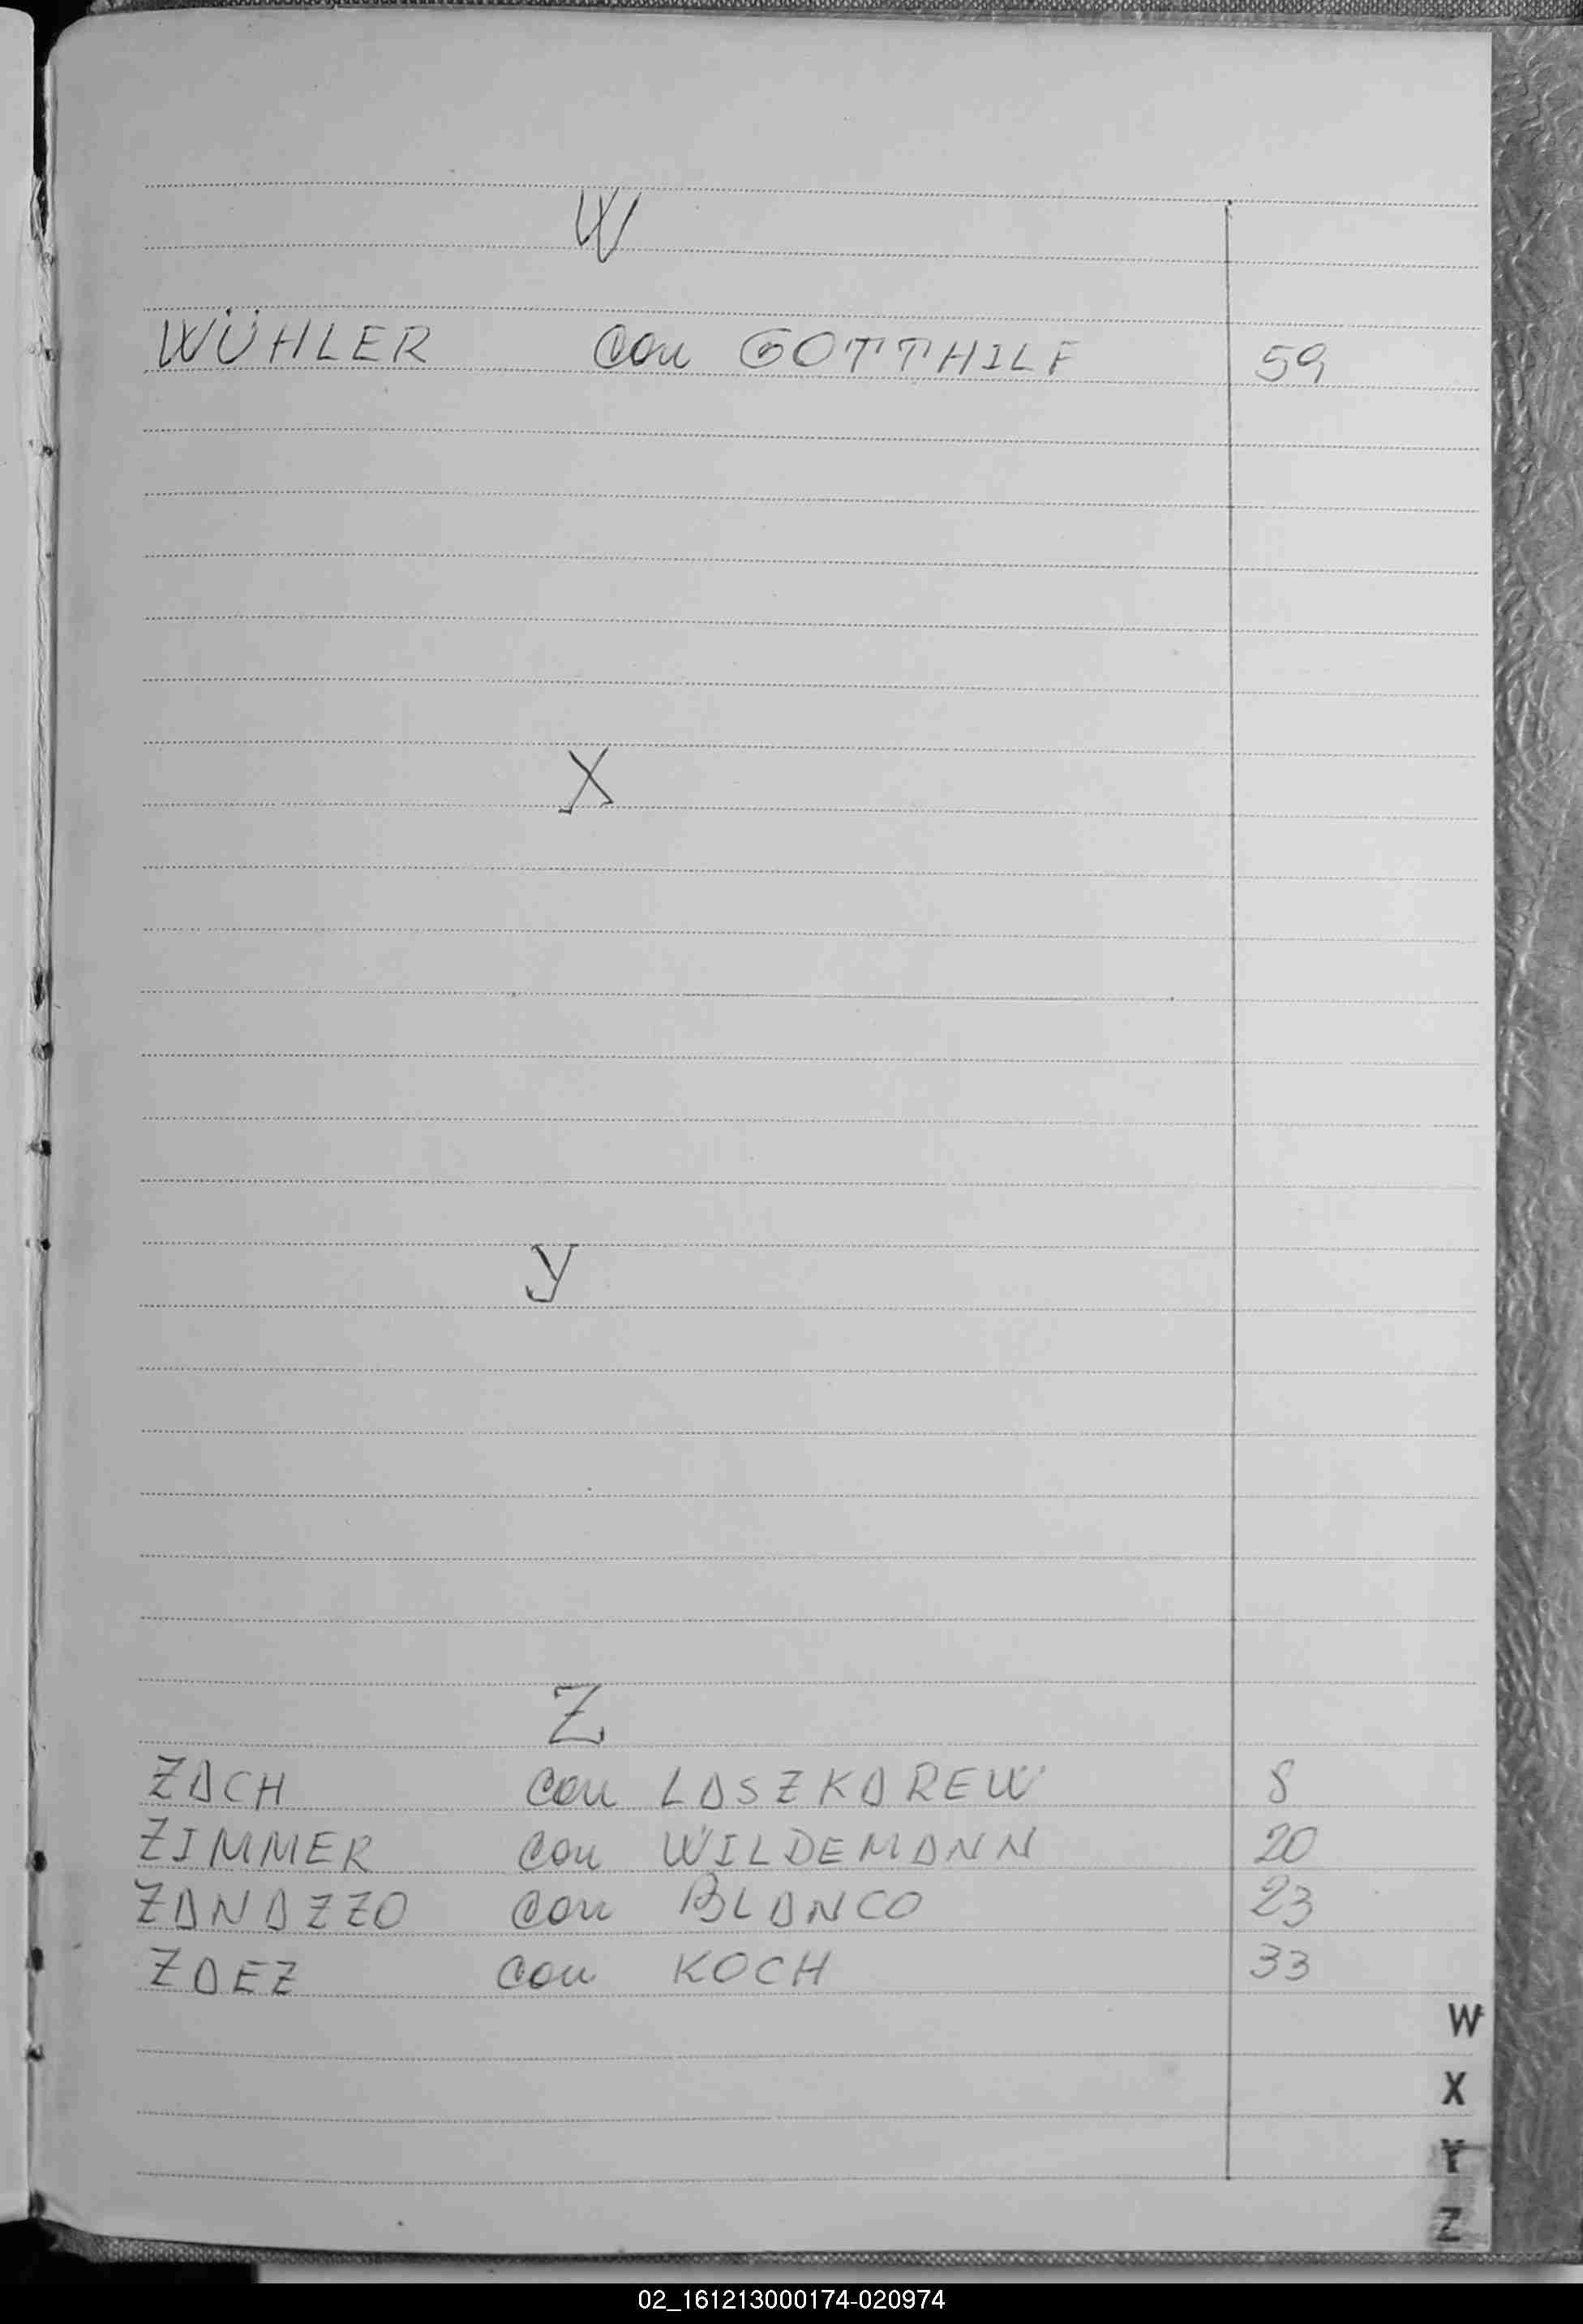 W
WÜHLER con GOTTHILF 59
X
Y
Z
ZACH con LASZKAREW 8
ZIMMER con WILDEMANN 20
ZANAZZO con BLANCO 23
ZAEZ con KOCH 33
W
X
Y
Z
02_161213000174-020974